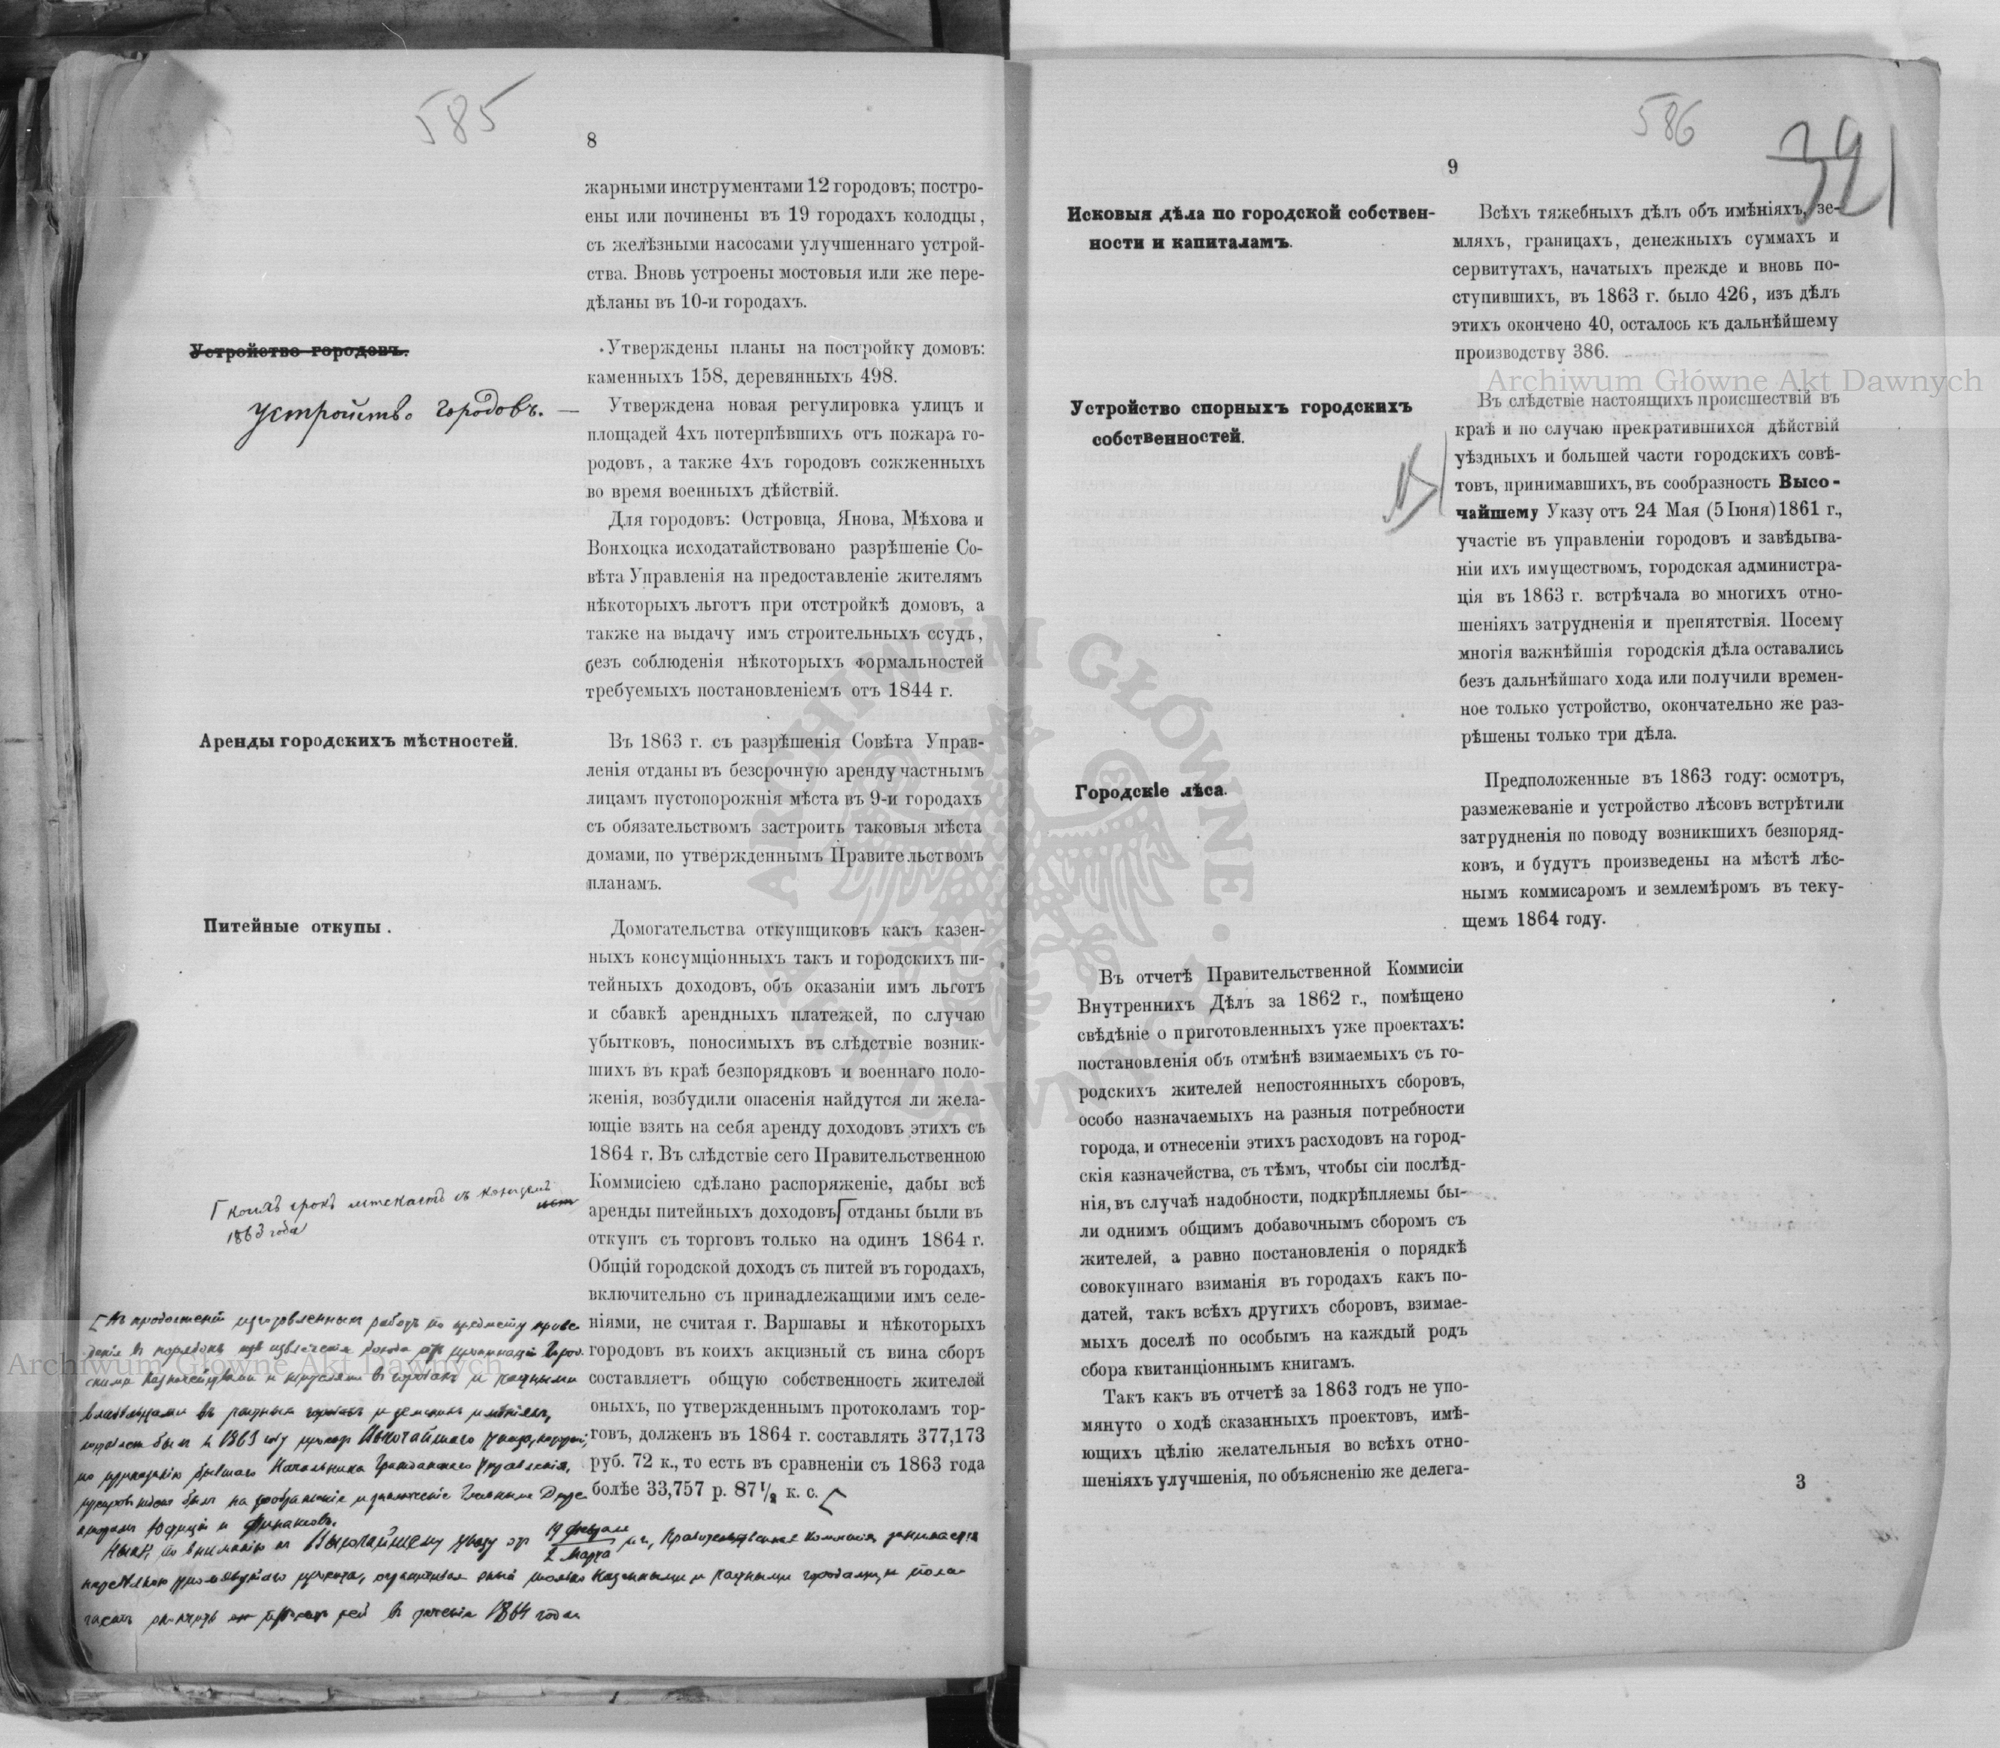 585
8
жарными инструментами 12 городовъ; построены
ены или починены въ 19 городахъ колодцы,
съ желѣзными насосами улучшеннаго устрой-
ства. Вновь устроены мостовыя или же пере-
дѣланы въ 10-и городахъ.
Устройство городовъ.
устройство городовъ. —
Утверждены планы на постройку домовъ:
каменныхъ 158, деревянныхъ 498.
Утверждена новая регулировка улицъ и
площадей 4хъ потерпѣвшихъ отъ пожара го-
родовъ, а также 4хъ городовъ сожженныхъ
во время военныхъ дѣйствій.
Для городовъ: Островца, Янова, Мѣхова и
Вонхоцка исходатайствовано разрѣшеніе Со-
вѣта Управленія на предоставленіе жителямъ
нѣкоторыхъ льготъ при отстройкѣ домовъ, а
также на выдачу имъ строительныхъ ссудъ,
безъ соблюденія нѣкоторыхъ формальностей
требуемыхъ постановленіемъ отъ 1844 г.
Аренды городскихъ мѣстностей.
Въ 1863 г. съ разрѣшенія Совѣта Управ-
ленія отданы въ безсрочную аренду частнымъ
лицамъ пустопорожнія мѣста въ 9-и городахъ
съ обязательствомъ застроить таковыя мѣста
домами, по утвержденнымъ Правительствомъ
планамъ.
Питейные откупы.
Домогательства откупщиковъ какъ казен-
ныхъ консумціонныхъ такъ и городскихъ пи-
тейныхъ доходовъ, объ оказаніи имъ льготъ
и сбавкѣ арендныхъ платежей, по случаю
убытковъ, поносимыхъ въ слѣдствіе возник-
шихъ въ краѣ безпорядковъ и военнаго поло-
женія, возбудили опасенія найдутся ли жела-
ющіе взять на себя аренду доходовъ этихъ съ
1864 г. Въ слѣдствіе сего Правительственною
Коммисіею сдѣлано распоряженіе, дабы всѣ
аренды питейныхъ доходовъ отданы были въ
откупъ съ торговъ только на одинъ 1864 г.
Общій городской доходъ съ питей въ городахъ,
включительно съ принадлежащими имъ селе-
ніями, не считая г. Варшавы и нѣкоторыхъ
городовъ въ коихъ акцизный съ вина сборъ
составляетъ общую собственность жителей
оныхъ, по утвержденнымъ протоколамъ тор-
говъ, долженъ въ 1864 г. составлять 377,173
руб. 72 к., то есть въ сравненіи съ 1863 года
болѣе 33,757 р. 87 1/2 к. с.
коихъ срокъ истекаетъ съ концемъ
1863 года
владѣльцами въ
1863 году Высочайшаго указа,
бывшаго Начальника Гражданскаго Управленія,
Юстиціи и Финансовъ.
Высочайшему указу отъ 19 Февраля
2 Марта
Правительственная Коммисія занимается
1864 года
586
321
9
Исковыя дѣла по городской собствен-
ности и капиталамъ.
Всѣхъ тяжебныхъ дѣлъ объ имѣніяхъ, зе-
мляхъ, границахъ, денежныхъ суммахъ и
сервитутахъ, начатыхъ прежде и вновь по-
ступившихъ, въ 1863 г. было 426, изъ дѣлъ
этихъ окончено 40, осталось къ дальнѣйшему
производству 386.
Устройство спорныхъ городскихъ
собственностей.
Въ слѣдствіе настоящихъ происшествій въ
краѣ и по случаю прекратившихся дѣйствій
уѣздныхъ и большей части городскихъ совѣ-
товъ, принимавшихъ, въ сообразность Высо-
чайшему Указу отъ 24 Мая (5 Іюня) 1861 г.,
участіе въ управленіи городовъ и завѣдыва-
ніи ихъ имуществомъ, городская администра-
ція въ 1863 г. встрѣчала во многихъ отно-
шеніяхъ затрудненія и препятствія. Посему
многія важнѣйшія городскія дѣла оставались
безъ дальнѣйшаго хода или получили времен-
ное только устройство, окончательно же раз-
рѣшены только три дѣла.
Городскіе лѣса.
Предположенные въ 1863 году: осмотръ,
размежеваніе и устройство лѣсовъ встрѣтили
затрудненія по поводу возникшихъ безпоряд-
ковъ, и будутъ произведены на мѣстѣ лѣс-
нымъ коммисаромъ и землемѣромъ въ теку-
щемъ 1864 году.
Въ отчетѣ Правительственной Коммисіи
Внутреннихъ Дѣлъ за 1862 г., помѣщено
свѣдѣніе о приготовленныхъ уже проектахъ:
постановленія объ отмѣнѣ взимаемыхъ съ го-
родскихъ жителей непостоянныхъ сборовъ,
особо назначаемыхъ на разныя потребности
города, и отнесеніи этихъ расходовъ на город-
скія казначейства, съ тѣмъ, чтобы сіи послѣд-
нія, въ случаѣ надобности, подкрѣпляемы бы-
ли однимъ общимъ добавочнымъ сборомъ съ
жителей, а равно постановленія о порядкѣ
совокупнаго взиманія въ городахъ какъ по-
датей, такъ всѣхъ другихъ сборовъ, взимае-
мыхъ доселѣ по особымъ на каждый родъ
сбора квитанціоннымъ книгамъ.
Такъ какъ въ отчетѣ за 1863 годъ не упо-
мянуто о ходѣ сказанныхъ проектовъ, имѣ-
ющихъ цѣлію желательныя во всѣхъ отно-
шеніяхъ улучшенія, по объясненію же делега-
3
Archiwum Główne Akt Dawnych
Archiwum Główne Akt Dawnych
ARCHIWUM GŁÓWNE AKT DAWNYCH